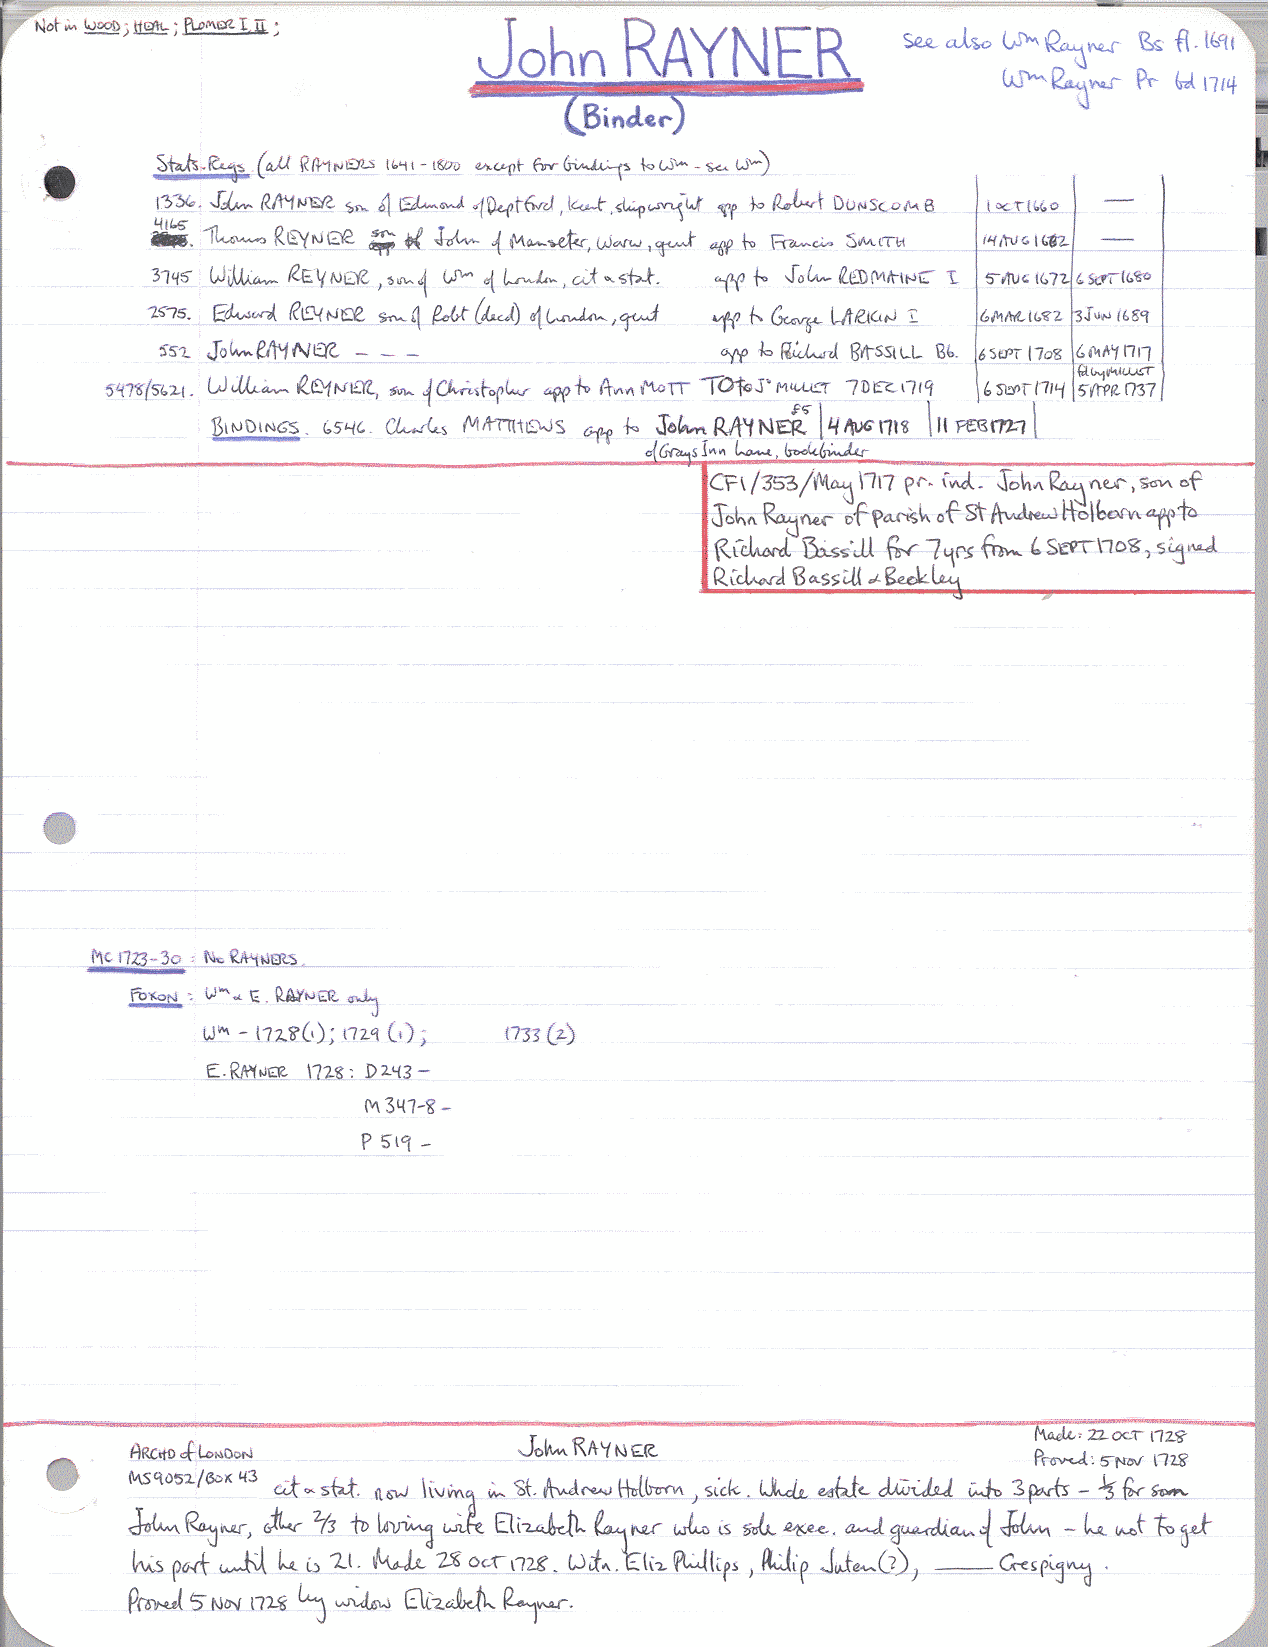 Not in WOOD; HEAL; PLOMER I II;
John RAYNER
(Binder)
see also Wm Rayner Bs fl. 1691
Wm Rayner Pr bd 1714
Stats. Regs (all RAYNERS 1641-1800 except for bindings to Wm - see Wm)
1336. John RAYNER son of Edmond of Deptford, Kent, shipwright app to Robert DUNSCOMB 1 OCT 1660 —
4165 Thomas REYNER son of John of Manseter, Warw, gent app to Francis SMITH 14 AUG 1682 —
3745 William REYNER, son of Wm of London, cit & stat. app to John REDMAINE I 5 AUG 1672 6 SEPT 1680
2575. Edward REYNER son of Robt (decd) of London, gent app to George LARKIN I 6 MAR 1682 3 JUN 1689
552 John RAYNER - - - app to Richard BASSILL Bb. 6 SEPT 1708 6 MAY 1717
5478/5621. William REYNER, son of Christopher app to Ann MOTT TO to Jn MILLET 7 DEC 1719 6 SEPT 1714 fd by MILLET 5 APR 1737
BINDINGS. 6546. Charles MATTHEWS app to John RAYNER £5 4 AUG 1718 11 FEB 1727
of Grays Inn Lane, bookbinder
CF1/353/May 1717 pr. ind. John Rayner, son of
John Rayner of parish of St Andrew Holborn app to
Richard Bassill for 7 yrs from 6 SEPT 1708, signed
Richard Bassill & Beckley
MC 1723-30 : No RAYNERS.
FOXON : Wm & E. RAYNER only
Wm - 1728 (1); 1729 (1); 1733 (2)
E. RAYNER 1728: D243 -
M 347-8 -
P 519 -
ARCHD of LONDON John RAYNER Made: 22 OCT 1728
Proved: 5 NOV 1728
MS 9052/BOX 43 cit & stat. now living in St. Andrew Holborn, sick. Whole estate divided into 3 parts - 1/3 for son
John Rayner, other 2/3 to loving wife Elizabeth Rayner who is sole exec. and guardian of John - he not to get
his part until he is 21. Made 28 OCT 1728. Witn. Eliz Phillips, Philip Juten (?), —— Crespigny.
Proved 5 NOV 1728 by widow Elizabeth Rayner.